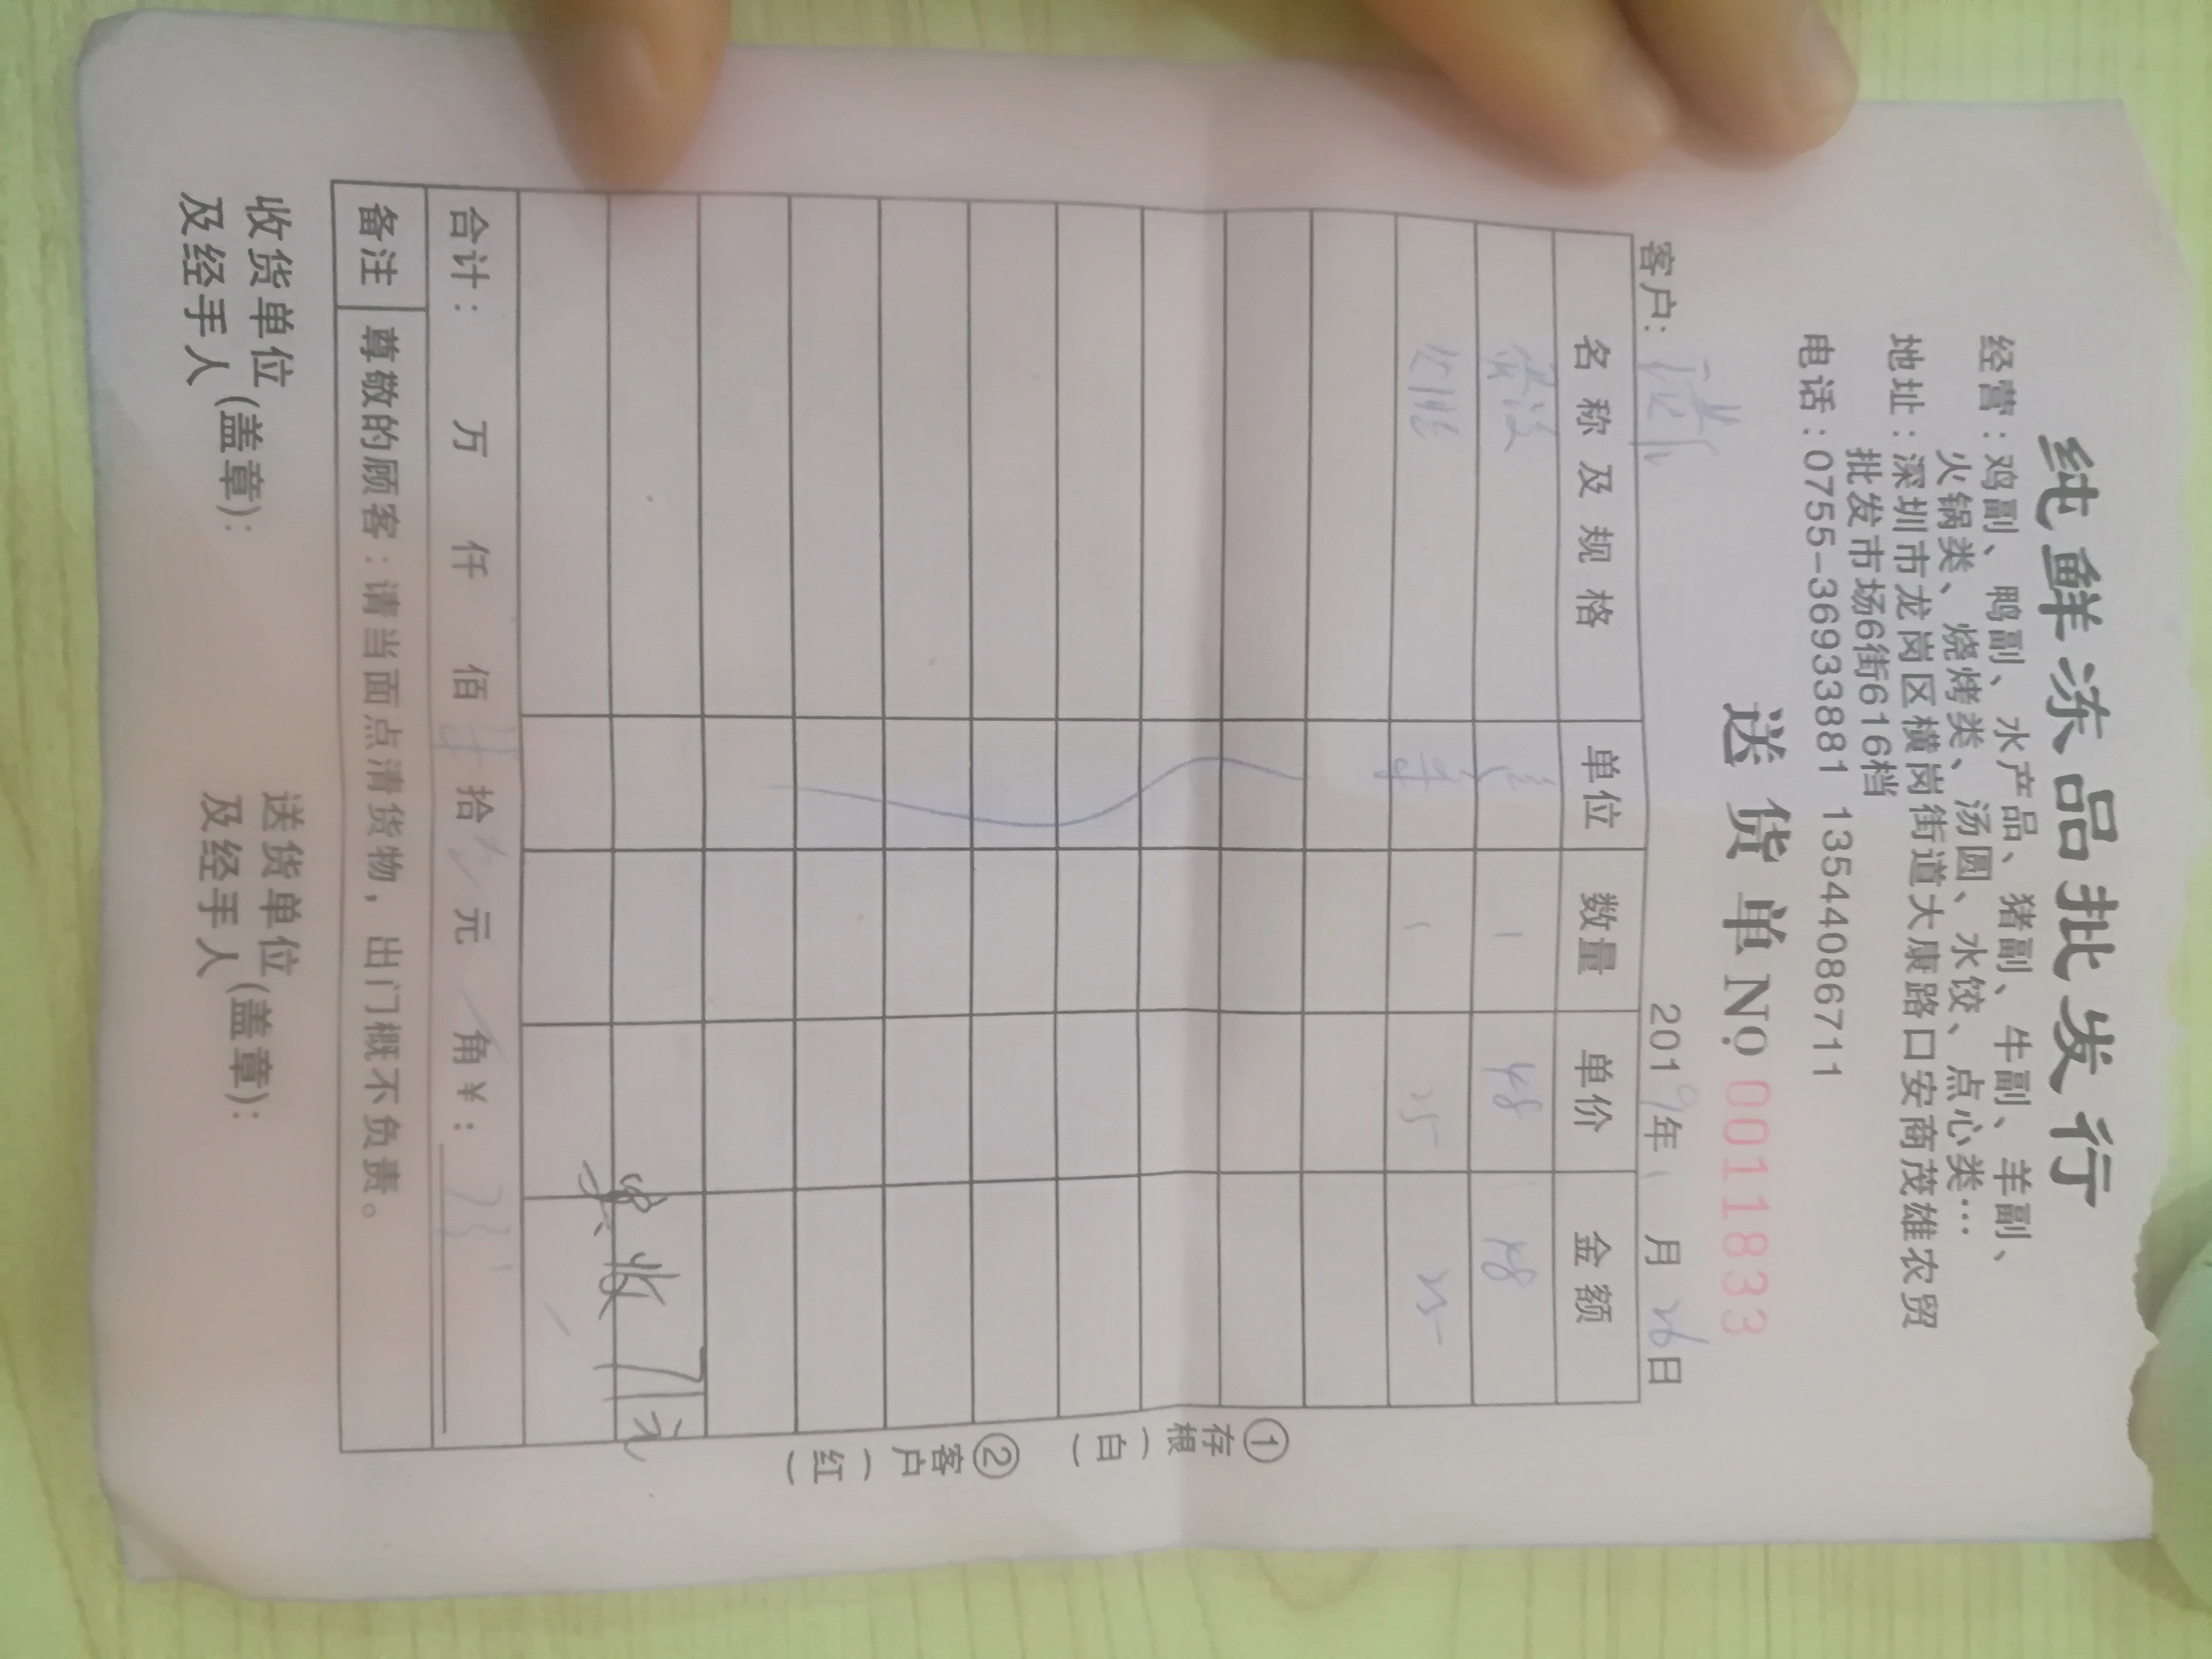 纯鲜冻品批发行
经营：鸡副、鸭副、水产品、猪副、牛副、羊副、
火锅类、烧烤类、汤圆、水饺、点心类…
地址：深圳市龙岗区横岗街道大康路口安商茂雄农贸
批发市场6街616档
电话：0755-36933881 13544086711
送货单 № 0011833
客户:
2019年1月26日
名称及规格 单位 数量 单价 金额
1 48 48
1 25 25
实收71元
合计： 万 仟 佰 拾 元 角 ¥： 73
备注 尊敬的顾客：请当面点清货物，出门概不负责。
收货单位及经手人(盖章):
送货单位及经手人(盖章):
①存根(白) ②客户(红)